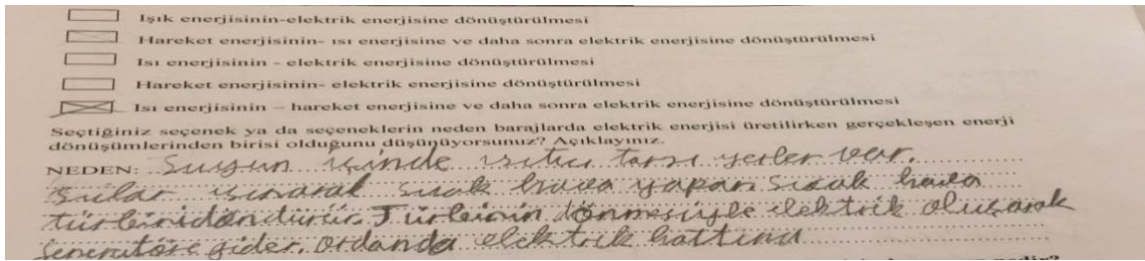 Işık enerjisinin-elektrik enerjisine dönüştürülmesi
Hareket enerjisinin- ısı enerjisine ve daha sonra elektrik enerjisine dönüştürülmesi
Isı enerjisinin - elektrik enerjisine dönüştürülmesi
Hareket enerjisinin- elektrik enerjisine dönüştürülmesi
Isı enerjisinin – hareket enerjisine ve daha sonra elektrik enerjisine dönüştürülmesi
Seçtiğiniz seçenek ya da seçeneklerin neden barajlarda elektrik enerjisi üretilirken gerçekleşen enerji
dönüşümlerinden birisi olduğunu düşünüyorsunuz? Açıklayınız.
NEDEN: Suyun içinde ısıtıcı tarzı yerler var.
Sular ısınarak sıcak hava yapar. Sıcak hava
türbini döndürür. Türbinin dönmesiyle elektrik oluşarak
jeneratöre gider. ordanda elektrik hattına